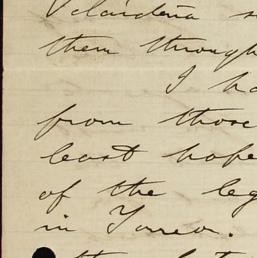 Velardeña s
them through
I ha
from those
least hope
of the leg
in Torreon.